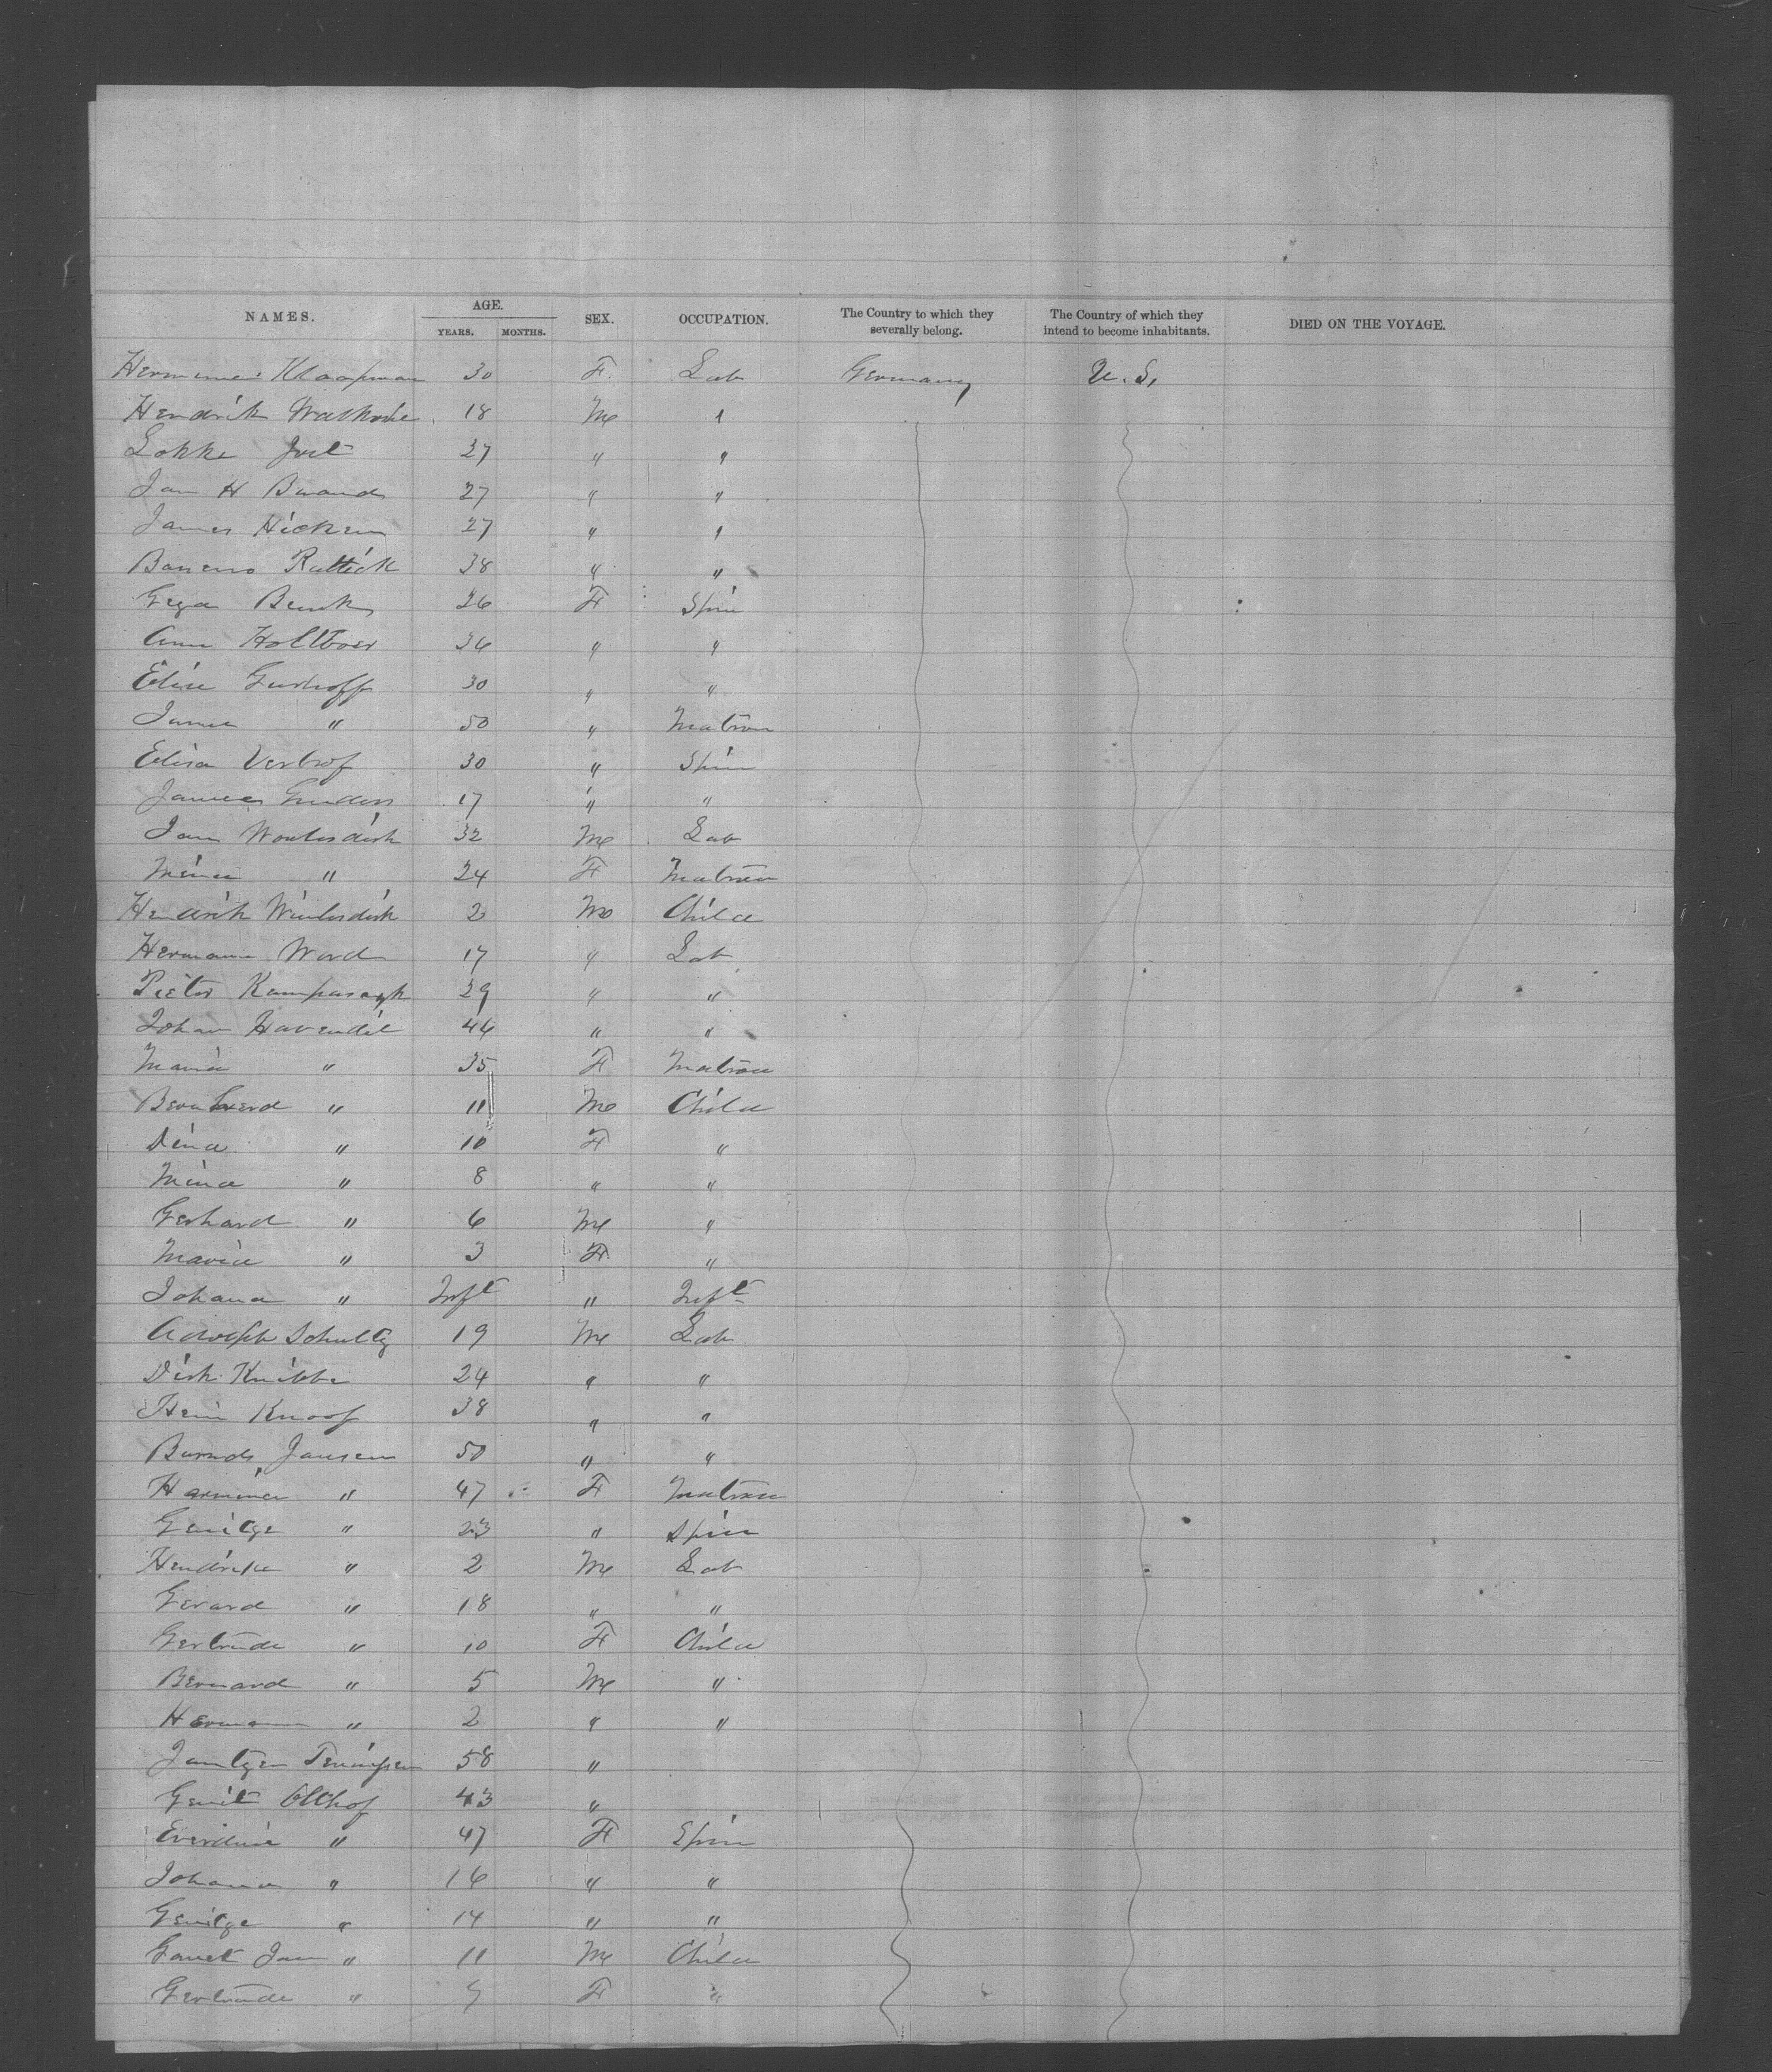 NAMES. AGE. SEX. OCCUPATION. The Country to which they severally belong. The Country of which they intend to become inhabitants. DIED ON THE VOYAGE.
YEARS. MONTHS.
Klaapman 30 F. Lab Germany U.S.
Hendrik 18 M "
Lokke 27 " "
Jan H Barands 27 " "
James Hicken 27 " "
Rattick 38 " "
Gega 26 F Spin
Ann Holtboer 36 " "
Elise Gushoff 30 " "
" 50 " Matron
Elisa Verhof 30 " Spin
17 " "
Jan Wontesdirk 32 M Lab
Mina " 24 F Matron
Hendrik 2 M Child
Hermann Word 17 " Lab
Pieter 29 " "
Johan Havendil 44 " "
Maria " 35 F Matron
" 11 M Child
Dina " 10 F "
Mina " 8 " "
Gerhard " 6 M "
Maria " 3 F "
Johana " Inft " Inft
Adolph Schultz 19 M Lab
Dirk Knibbe 24 " "
Hein Knoof 38 " "
Jansen 50 " "
Harmina " 47 F Matron
" 23 " Spin
" 2 M Lab
Gerard " 18 " "
Gertrude " 10 F Child
Bernard " 5 M "
Hermann " 2 " "
58 "
Gerrit Olthof 43 "
Everdina " 47 F Spin
Johanna " 16 " "
" 14 " "
Jan " 11 M Child
Gertrude " F "